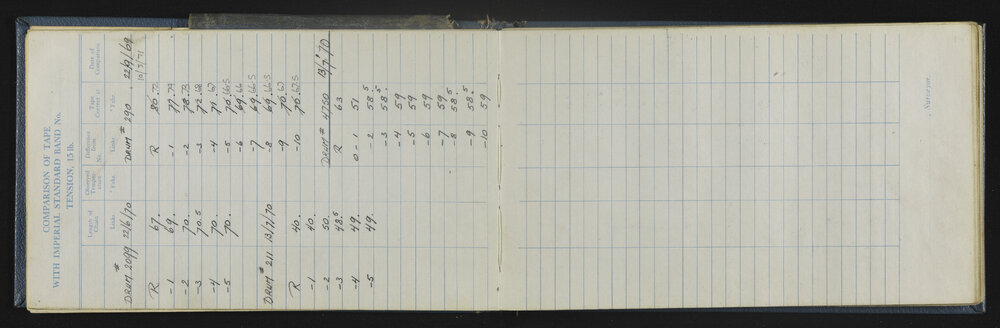 COMPARISON OF TAPE
WITH IMPERIAL STANDARD BAND No.
TENSION, 15 lb.
Length of Chain.
Observed Temper-ature
Difference from No.
Tape Correct at
Date of Comparison
Links.
° Fahr.
Links.
° Fahr.
DRUM # 2099 22/6/70
R 67.
-1 69.
-2 70.
-3 70.5
-4 70.
-5 70.
DRUM # 211 13/7/70
R 40.
-1 40.
-2 50.
-3 48.5
-4 49.
-5 49.
DRUM # 290. 22/9/69
10/3/71
R 80. 72
-1 77. 74
-2 78. 73
-3 72. 68
-4 71. 67
-5 70. 66.5
-6 69. 66
-7 69. 66.5
-8 69. 66.5
-9 70. 67
-10 70. 67.5
DRUM # 4750 13/7/70
R 63
0-1 51
-2 58.5
-3 58.5
-4 59
-5 59
-6 59
-7 59
-8 58.5
-9 58.5
-10 59
Surveyor.